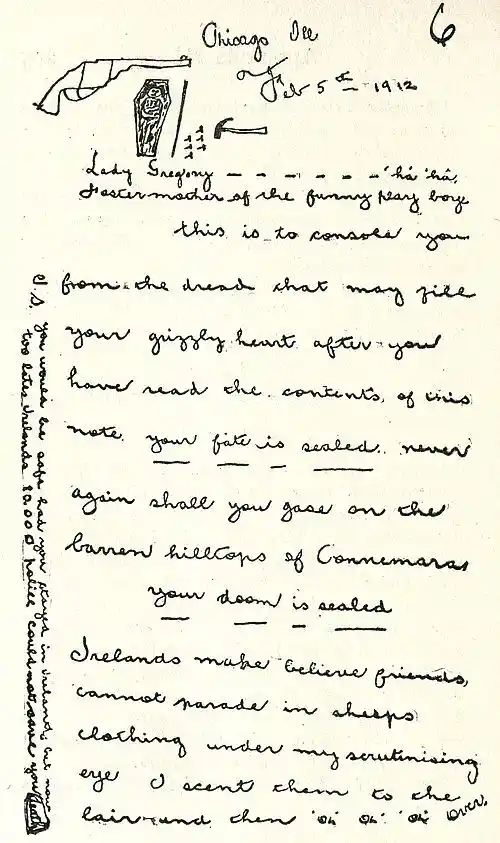 6
Chicago Ill
Feb 5th 1912
Lady Gregory – – – – – – 'há 'há,
Foster mother of the funny play boys
this is to console you
from the dread that may fill
your grizzly heart after you
have read the contents of this
note. your fate is sealed. never
again shall you gase on the
barren hilltops of Connemara
your doom is sealed
Irelands make believe friends,
cannot parade in sheeps
clothing under my scrutinising
eye I scent them to the
lair and then oh oh oh over.
P.S. you would be safe had you stayed in Ireland, but now
too late. Irelands 10.000 police could not save you
death